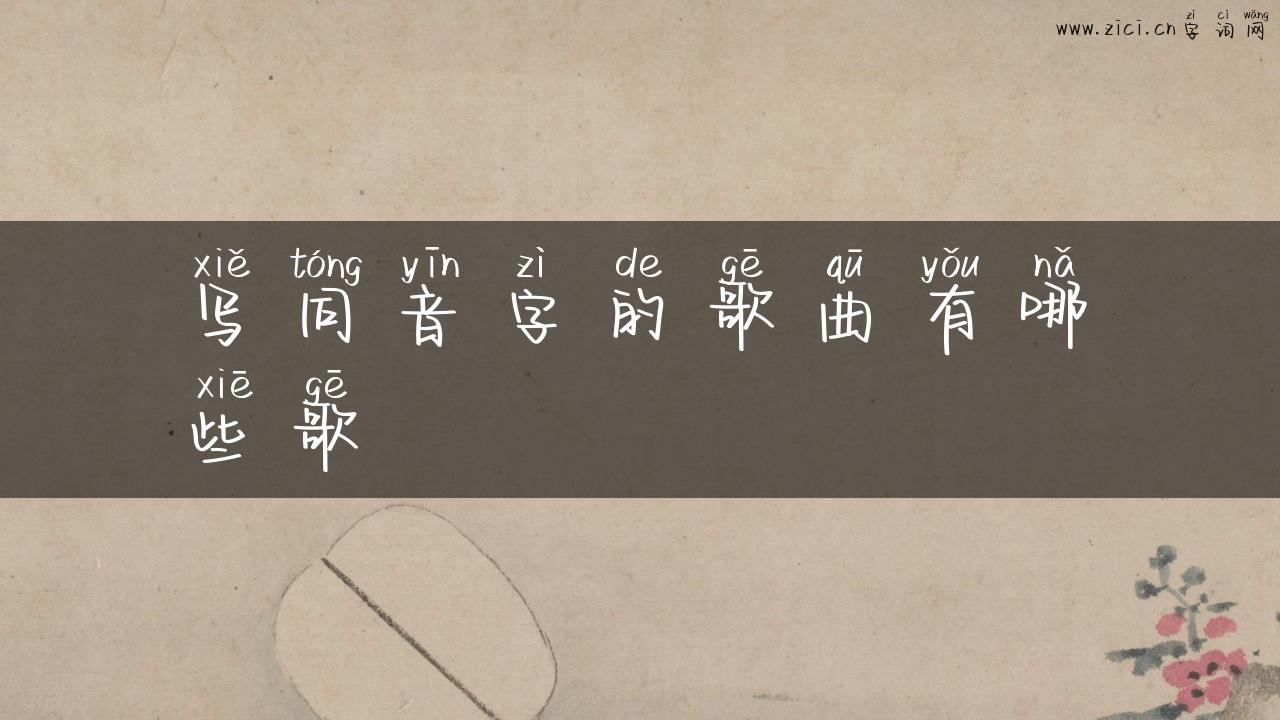 zì cí wǎng
www.zici.cn 字词网
xiě tóng yīn zì de gē qū yǒu nǎ
写同音字的歌曲有哪
xiē gē
些歌